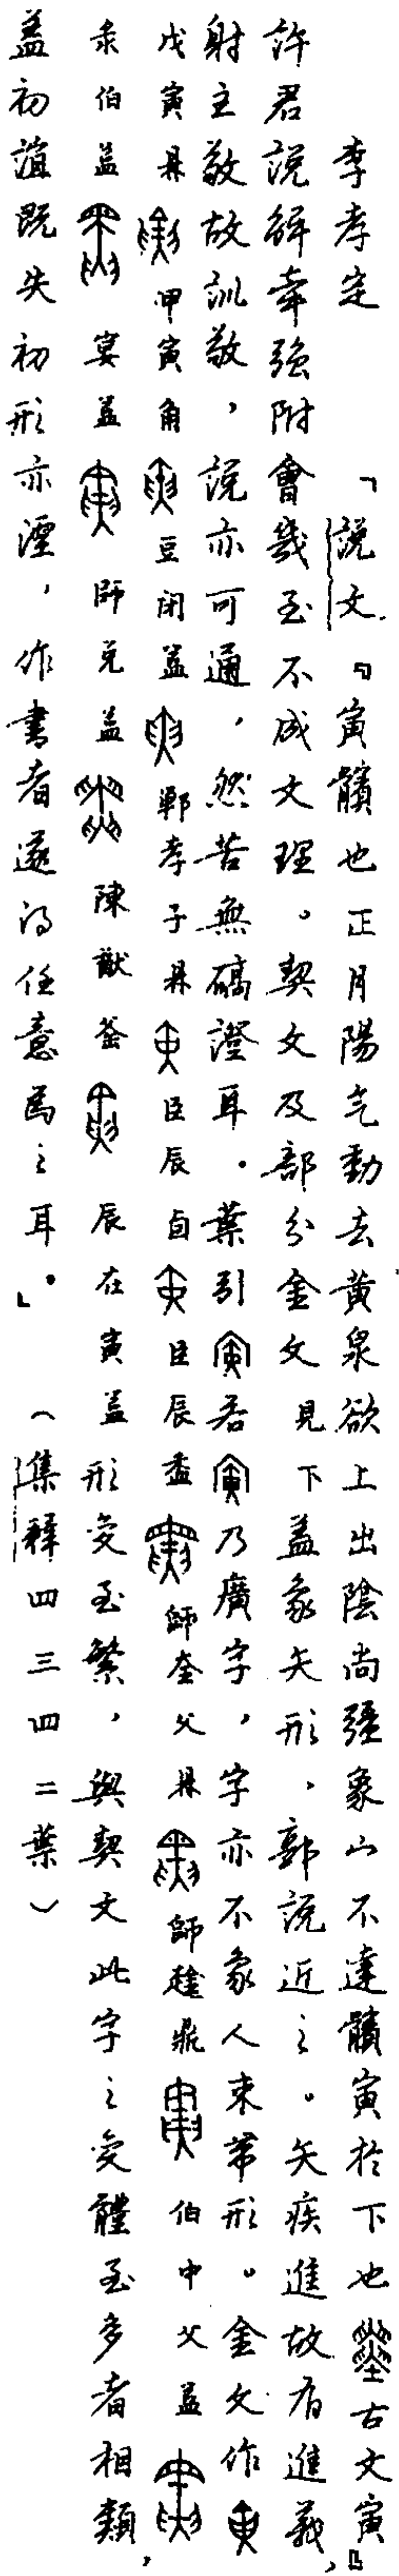 李孝定　「說文『寅髕也正月陽气動去黃泉欲上出陰尚彊象宀不達髕寅於下也古文寅』
許君說解牽強附會幾至不成文理。契文及部分金文見下蓋象矢形，郭說近之。矢疾進故有進義，
射主敬故訓敬，說亦可通，然苦無確證耳。葉引若乃廣字，字亦不象人束帶形。金文作
戊寅鼎甲寅角豆閉簋鄲孝子鼎臣辰卣臣辰盉師奎父鼎師趛鼎伯中父簋
彔伯簋宴簋師兌簋陳猷釜辰在寅簋形變至繁，與契文此字之變體至多者相類，
蓋初誼既失初形亦湮，作書者遂得任意為之耳。」（集釋四三四二葉）